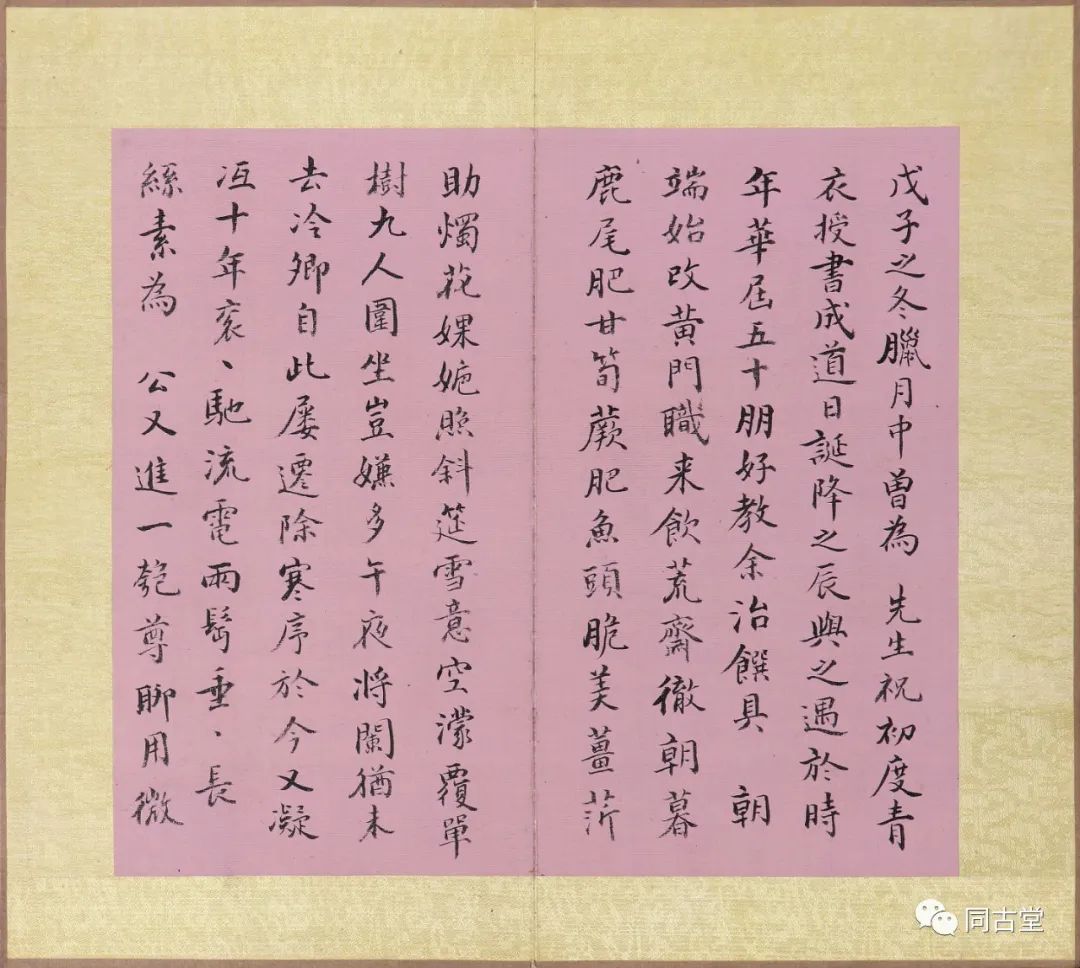 戊子之冬臘月中曾為 先生祝初度青
衣授書成道日誕降之辰與之遇於時
年華屆五十朋好教余治饌具 朝
端始改黃門職来飲荒齋徹朝暮
鹿尾肥甘筍蕨肥魚頭脆美薑芽
助燭花婐姽照斜筵雪意空濛覆單
樹九人圍坐豈嫌多午夜將闌猶未
去冷卿自此屢遷除寒序於今又凝
沍十年袞、馳流電兩髩垂、長
絲素為 公又進一匏尊聊用微
同古堂